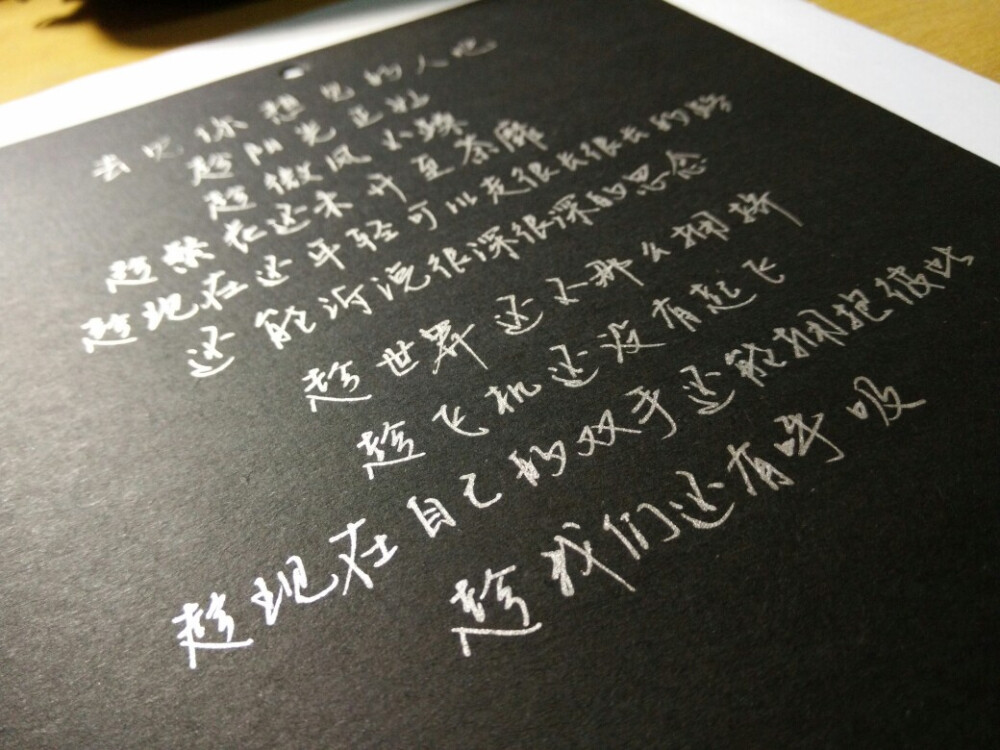 去见你想见的人吧
趁阳光正好
趁微风不躁
趁繁花还未开至荼靡
趁现在还年轻可以走很长很长的路
还能诉说很深很深的思念
趁世界还不那么拥挤
趁飞机还没有起飞
趁现在自己的双手还能拥抱彼此
趁我们还有呼吸